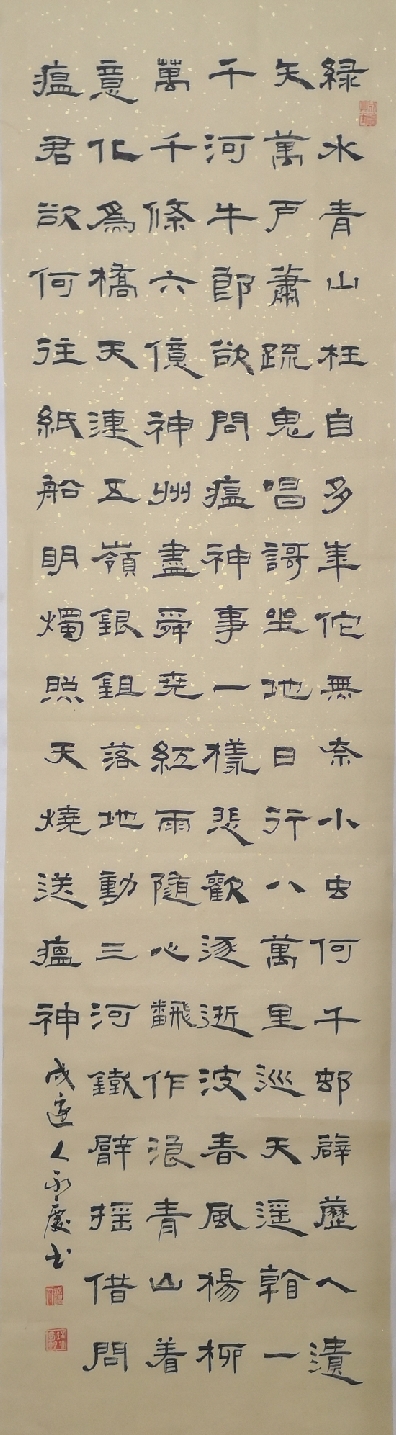 緑水青山枉自多華佗無奈小虫何千邨辟歷人潰
矢萬戶蕭疏鬼唱謌坐地日行八萬里巡天遥翰一
千河牛郎欲問瘟神事一樣悲歡逐逝波春風楊柳
萬千條六億神州盡舜尭紅雨随心飜作浪青山着
意化為橋天連五嶺銀鉏落地動三河鐵臂摇借問
瘟君欲何往紙船明燭照天燒送瘟神
人永慶书